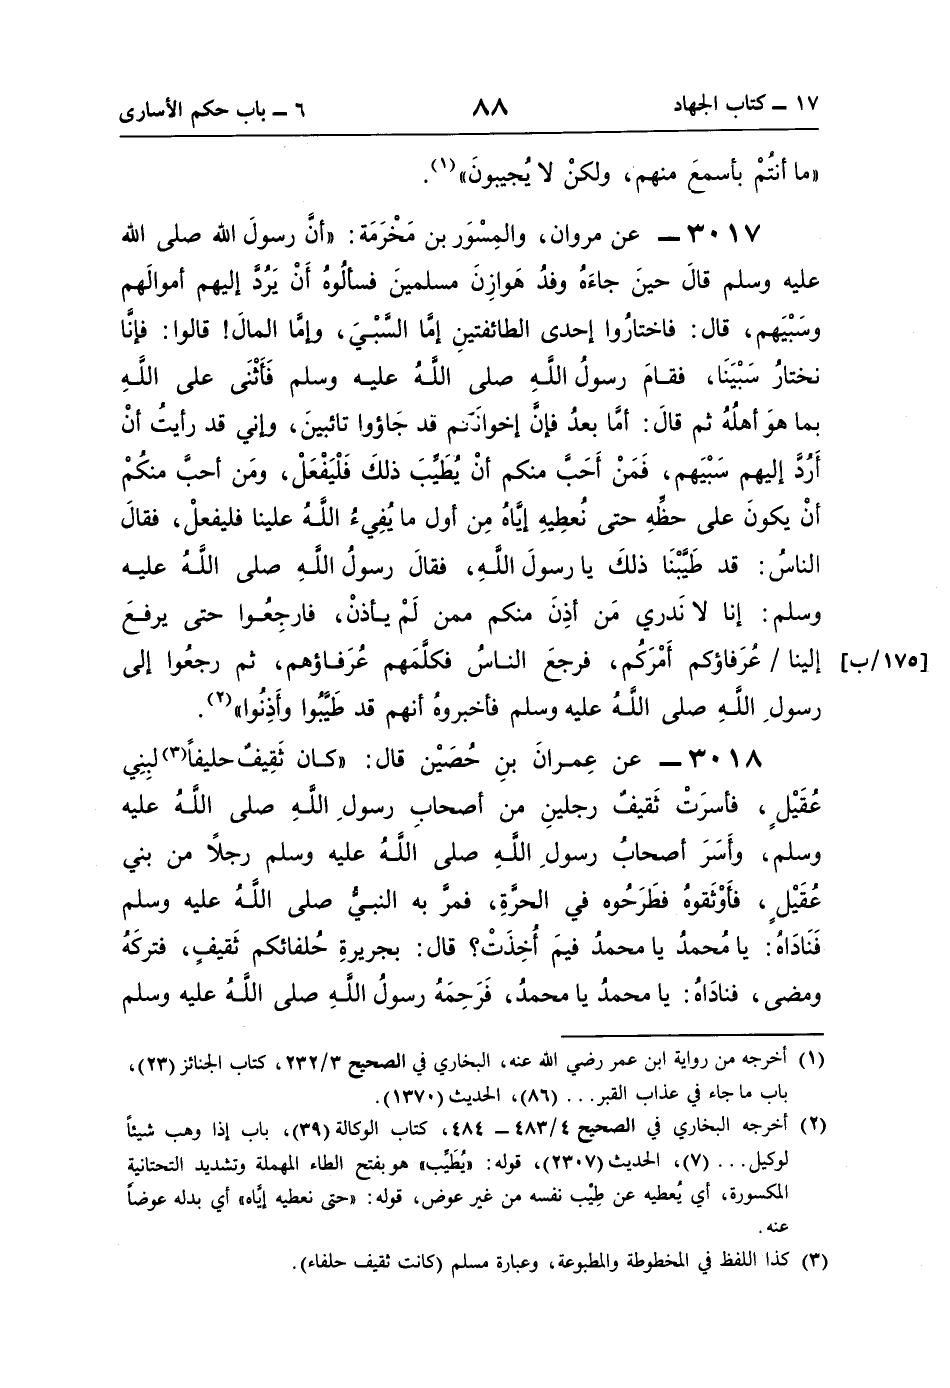 ١٧ ــ كتاب الجهاد ٨٨ ٦ ــ باب حكم الأسارى
«ما أنتُمْ بأسمعَ منهم، ولكنْ لا يُجيبونَ»(١).
٣٠١٧ ــ عن مروان، والمِسْوَر بن مَخْرَمَة: «أنَّ رسولَ الله صلى الله
عليه وسلم قالَ حينَ جاءَهُ وفدُ هَوازِنَ مسلمينَ فسألُوهُ أنْ يَرُدَّ إليهم أموالَهم
وسَبْيَهم، قال: فاختارُوا إحدى الطائفتينِ إمَّا السَّبْيَ، وإمَّا المالَ! قالوا: فإنَّا
نختارُ سَبْيَنَا، فقامَ رسولُ اللَّهِ صلى اللَّهُ عليه وسلم فَأَثْنَى على اللَّهِ
بما هوَ أهلُهُ ثم قالَ: أمَّا بعدُ فإنَّ إخوانَكم قد جَاؤوا تائبينَ، وإني قد رأيتُ أنْ
أَرُدَّ إليهم سَبْيَهم، فَمَنْ أَحَبَّ منكم أنْ يُطَيِّبَ ذلكَ فَلْيَفْعَلْ، ومَن أحبَّ منكُمْ
أنْ يكونَ على حظِّهِ حتى نُعطِيهِ إيَّاهُ مِن أول ما يُفِيءُ اللَّهُ علينا فليفعلْ، فقالَ
الناسُ: قد طَيَّبْنَا ذلكَ يا رسولَ اللَّهِ، فقالَ رسولُ اللَّهِ صلى اللَّهُ عليه
وسلم: إنا لا نَدري مَن أذِنَ منكم ممن لَمْ يأذنْ، فارجِعُوا حتى يرفعَ
إلينا / عُرَفاؤكم أمْرَكُم، فرجعَ الناسُ فكلَّمَهم عُرَفاؤهم، ثم رجعُوا إلى [١٧٥/ب]
رسولِ اللَّهِ صلى اللَّهُ عليه وسلم فأخبروهُ أنهم قد طَيَّبُوا وأَذِنُوا»(٢).
٣٠١٨ ــ عن عِمرانَ بنِ حُصَيْن قال: «كان ثَقِيفٌ حليفاً(٣) لبِنِي
عُقَيْلٍ، فأسرَتْ ثَقيفٌ رجلينِ من أصحابِ رسولِ اللَّهِ صلى اللَّهُ عليه
وسلم، وأَسَرَ أصحابُ رسولِ اللَّهِ صلى اللَّهُ عليه وسلم رجلاً من بني
عُقَيْلٍ، فأوْثَقوهُ فطَرَحُوه في الحرَّةِ، فمرَّ به النبيُّ صلى اللَّهُ عليه وسلم
فَنَادَاهُ: يا مُحمدُ يا محمدُ فيمَ أُخِذَتْ؟ قال: بجريرةِ حُلفائكم ثَقيفٍ، فتركَهُ
ومضى، فنادَاهُ: يا محمدُ يا محمدُ، فَرَحِمَهُ رسولُ اللَّهِ صلى اللَّهُ عليه وسلم
(١) أخرجه من رواية ابن عمر رضي الله عنه، البخاري في الصحيح ٢٣٢/٣، كتاب الجنائز (٢٣)،
باب ما جاء في عذاب القبر... (٨٦)، الحديث (١٣٧٠).
(٢) أخرجه البخاري في الصحيح ٤٨٣/٤ ــ ٤٨٤، كتاب الوكالة (٣٩)، باب إذا وهب شيئاً
لوكيل... (٧)، الحديث (٢٣٠٧)، قوله: «يُطَيِّب» هو بفتح الطاء المهملة وتشديد التحتانية
المكسورة، أي يُعطيه عن طِيْب نفسه من غير عوض، قوله: «حتى نعطيه إيَّاه» أي بدله عوضاً
عنه.
(٣) كذا اللفظ في المخطوطة والمطبوعة، وعبارة مسلم (كانت ثقيف حلفاء).